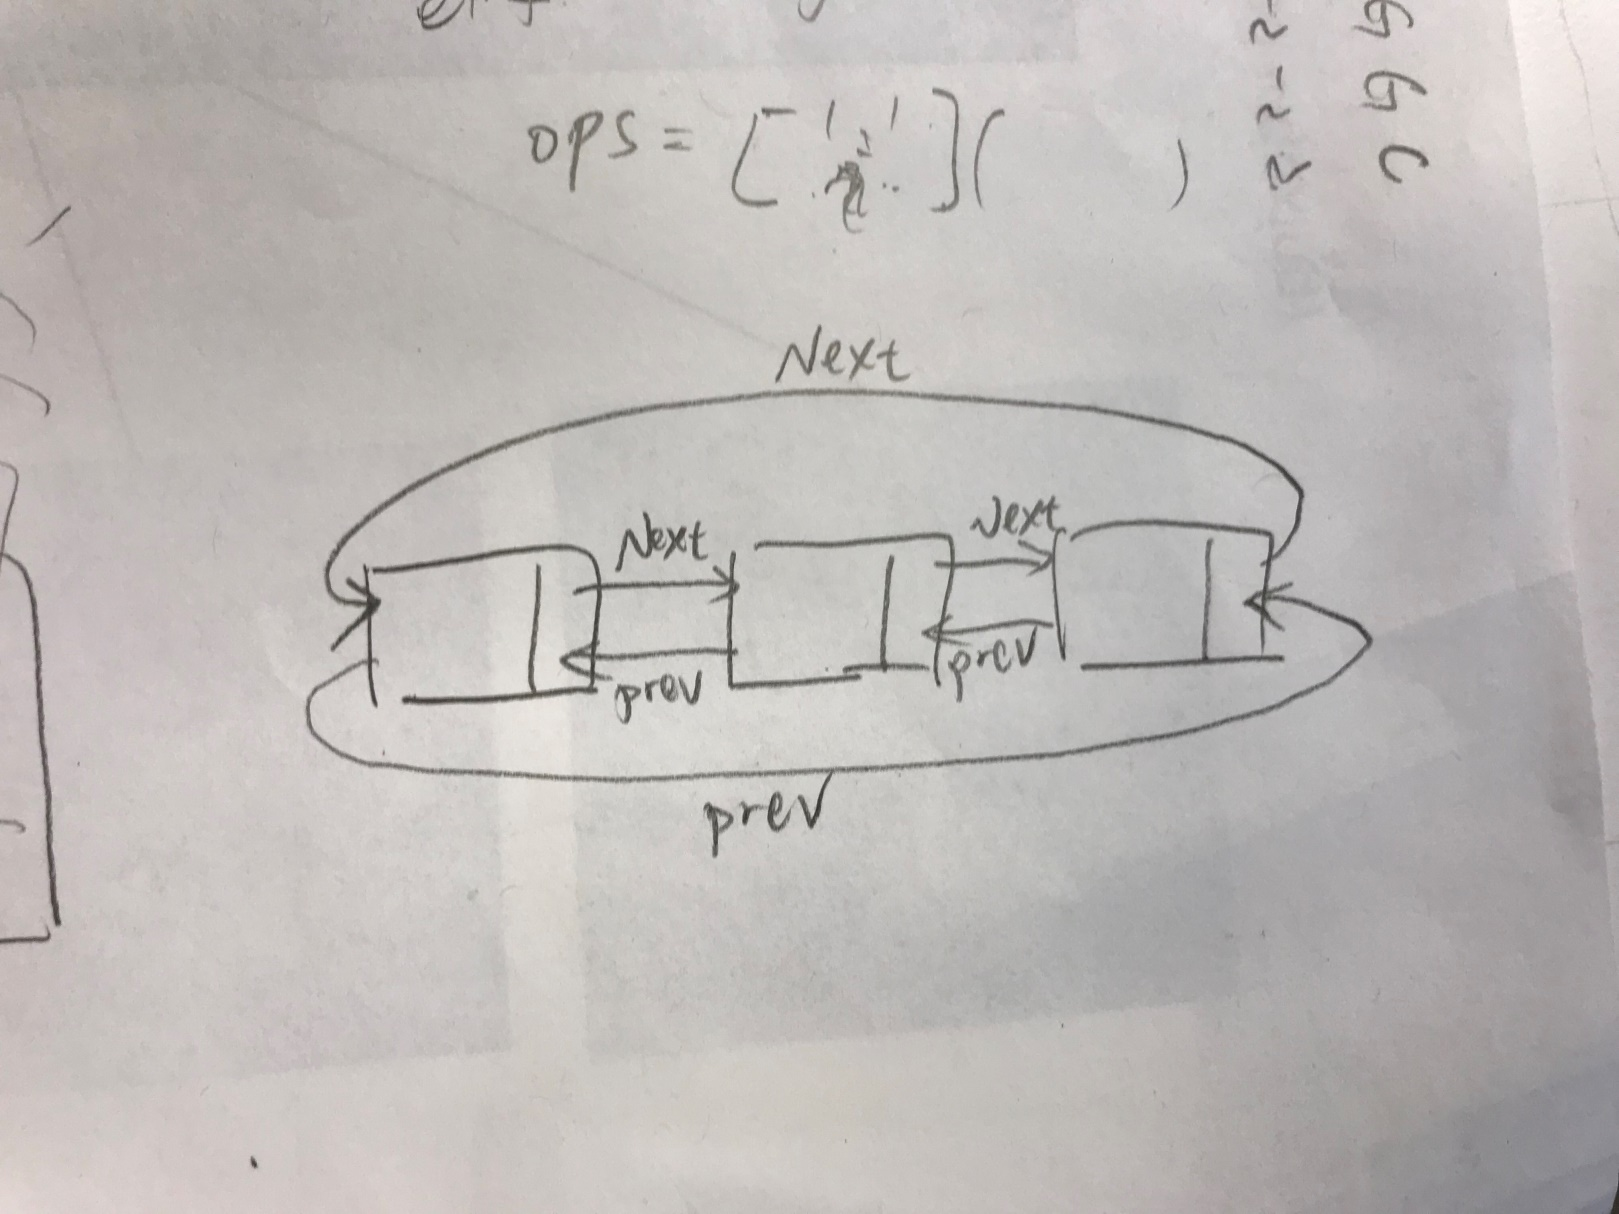 ops = [ ' ; ' ] ( )
Next
Next Next
prev prev
prev